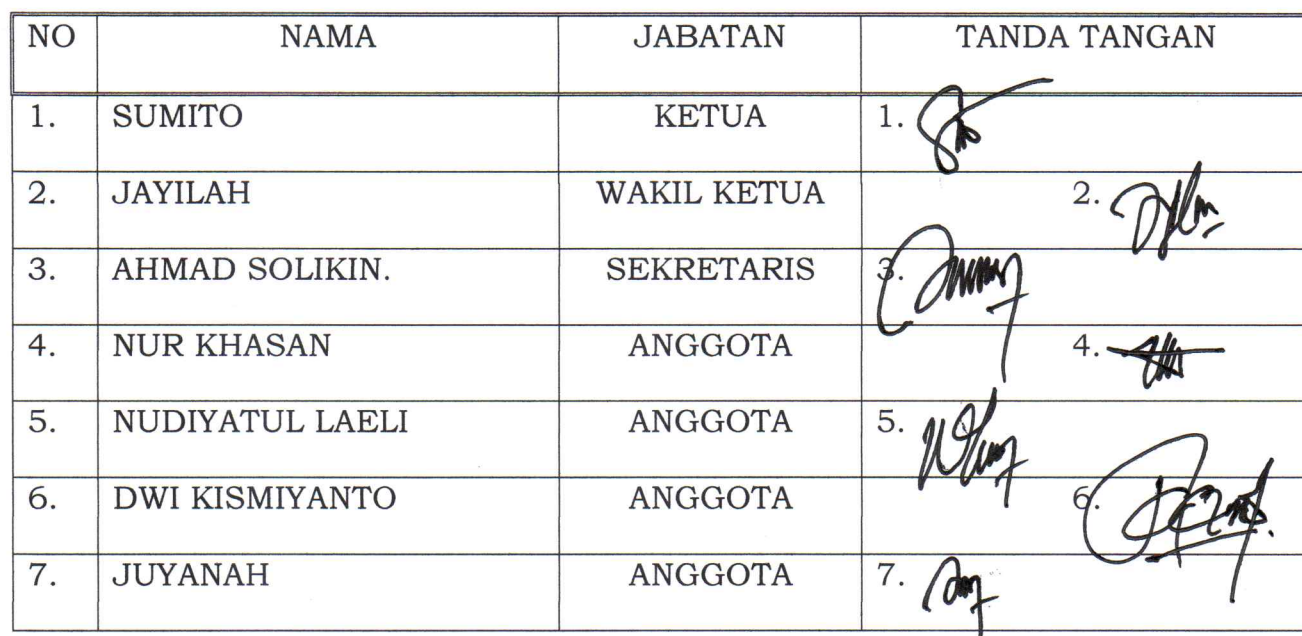 NO NAMA JABATAN TANDA TANGAN
1. SUMITO KETUA 1.
2. JAYILAH WAKIL KETUA 2.
3. AHMAD SOLIKIN. SEKRETARIS 3.
4. NUR KHASAN ANGGOTA 4.
5. NUDIYATUL LAELI ANGGOTA 5.
6. DWI KISMIYANTO ANGGOTA 6.
7. JUYANAH ANGGOTA 7.